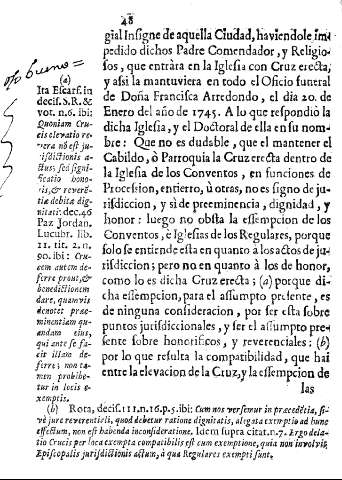 48
gial Insigne de aquella Ciudad, haviendole im-
pedido dichos Padre Comendador, y Religio-
sos, que entràra en la Iglesia con Cruz erecta,
y assi la mantuviera en todo el Oficio funeral
de Doña Francisca Arredondo, el dia 20. de
Enero del año de 1745. A lo que respondiò la
dicha Iglesia, y el Doctoral de ella en su nom-
bre: Que no es dudable, que el mantener el
Cabildo, ò Parroquia la Cruz erecta dentro de
la Iglesia de los Conventos, en funciones de
Procession, entierro, ù otras, no es signo de ju-
risdiccion, y sì de preeminencia, dignidad, y
honor: luego no obsta la essempcion de los
Conventos, è Iglesias de los Regulares, porque
solo se entiende esta en quanto a los actos de ju-
risdiccion; pero no en quanto à los de honor,
como lo es dicha Cruz erecta; (a) porque di-
cha essempcion, para el assumpto presente, es
de ninguna consideracion, por ser esta sobre
puntos jurisdiccionales, y ser el assumpto pre-
sente sobre honorificos, y reverenciales: (b)
por lo que resulta la compatibilidad, que hai
entre la elevacion de la Cruz, y la essempcion de
las
ojo bueno
(a)
Ita Escarf. in
decis. S. R. &
vot. n. 6. ibi:
Quoniam Cru-
cis elevatio re-
vera nõ est ju-
risdictionis a-
ctus, sed signi-
ficatio hono-
ris, & reverẽ-
tiæ debitæ dig-
nitati: dec. 46
Paz Jordan.
Lucubr. lib.
11. tit. 2. n.
90. ibi: Cru-
cem autem de-
ferre prout, &
benedictionem
dare, quamvis
denotet præe-
minentiam qu-
andam eius,
qui ante se fa-
cit illam de-
ferre; non ta-
men prohibe-
tur in locis e-
xemptis.
(b) Rota, decis. 111. n. 16. p. 5. ibi: Cum nos versemur in præcedẽtia, si-
vè jure reverentierli, quod debetur ratione dignitatis, alegata exemptio ad hunc
effectum, non est habenda inconsideratione. Idem supra citat. n. 7. Ergo dela-
tio Crucis per loca exempta compatibilis est cum exemptione, quia non involvit
Episcopalis jurisdictionis actum, à qua Regulares exempti sunt.